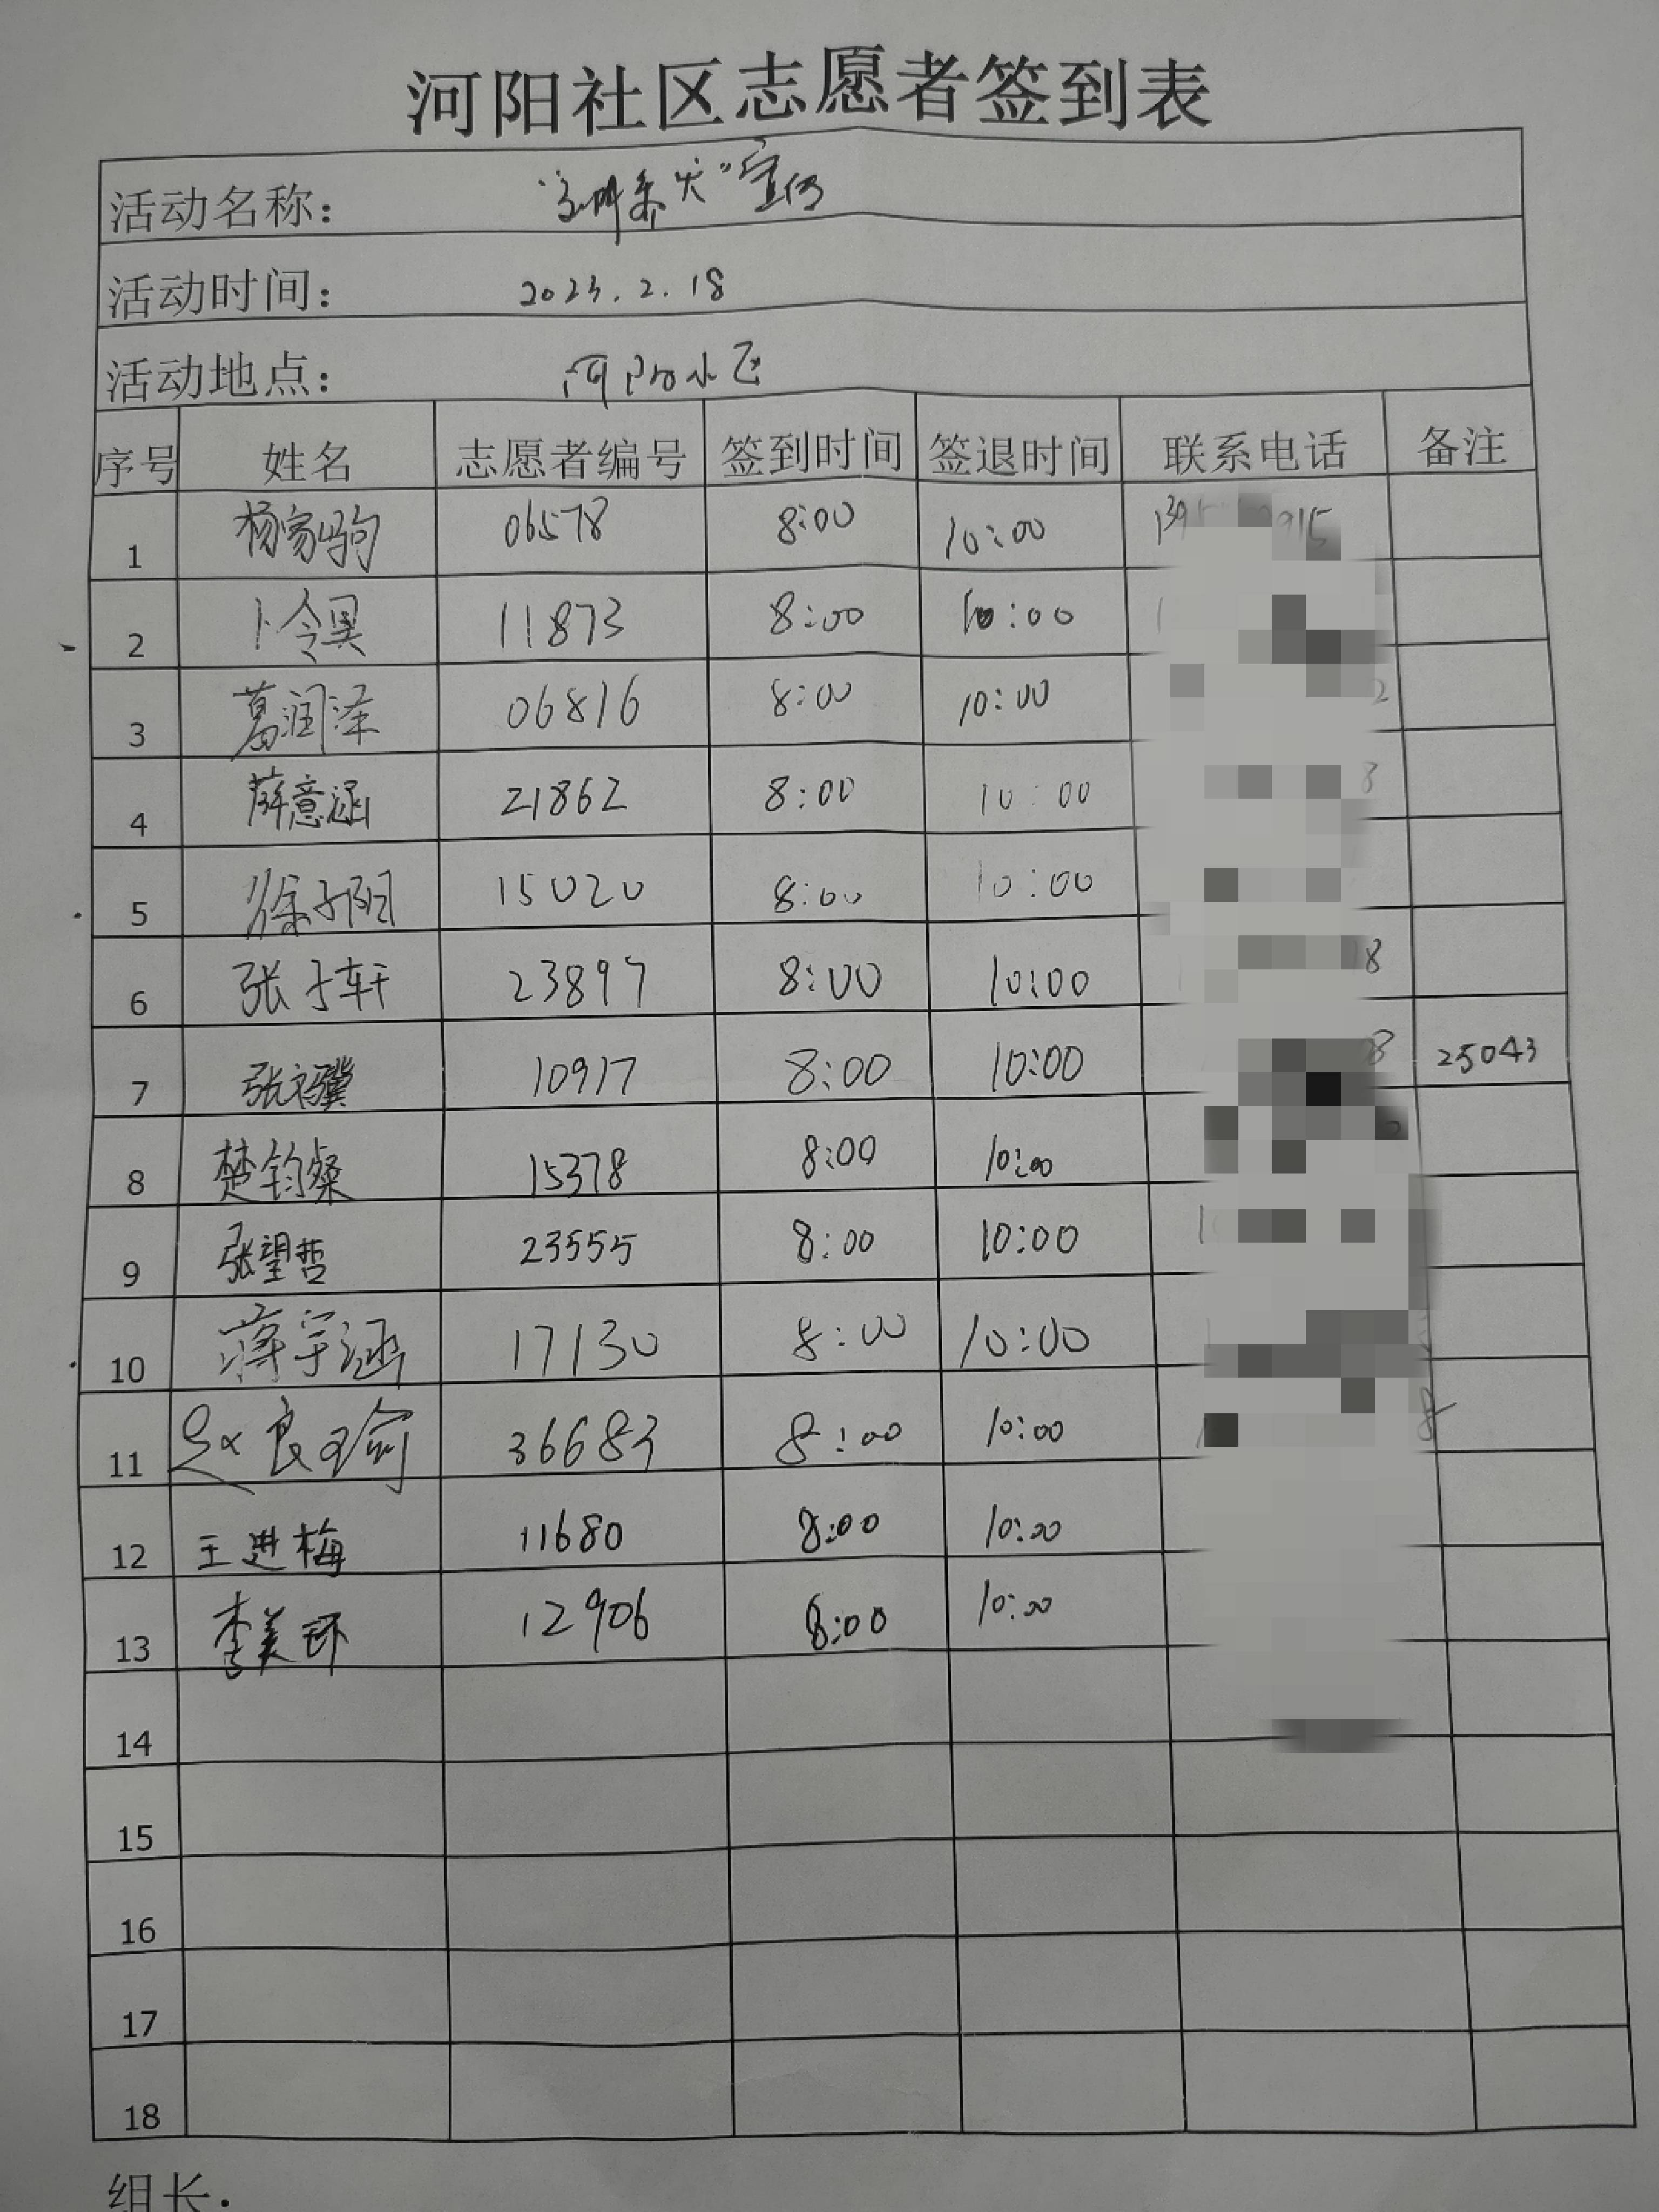 河阳社区志愿者签到表
活动名称： "全州杀灭"宣传
活动时间： 2023.2.18
活动地点： 河阳小区
序号 姓名 志愿者编号 签到时间 签退时间 联系电话 备注
1 杨家驹 06578 8:00 10:00
2 卜令昊 11873 8:00 10:00
3 葛润泽 06816 8:00 10:00
4 薛意涵 21862 8:00 10:00
5 徐子阳 15020 8:00 10:00
6 张子轩 23897 8:00 10:00
7 张骥 10917 8:00 10:00 25043
8 楚钧燊 15378 8:00 10:00
9 张望哲 23555 8:00 10:00
10 蒋宇涵 17130 8:00 10:00
11 吴良瑜 36683 8:00 10:00
12 王进梅 11680 8:00 10:00
13 李美环 12906 8:00 10:00
14
15
16
17
18
组长：